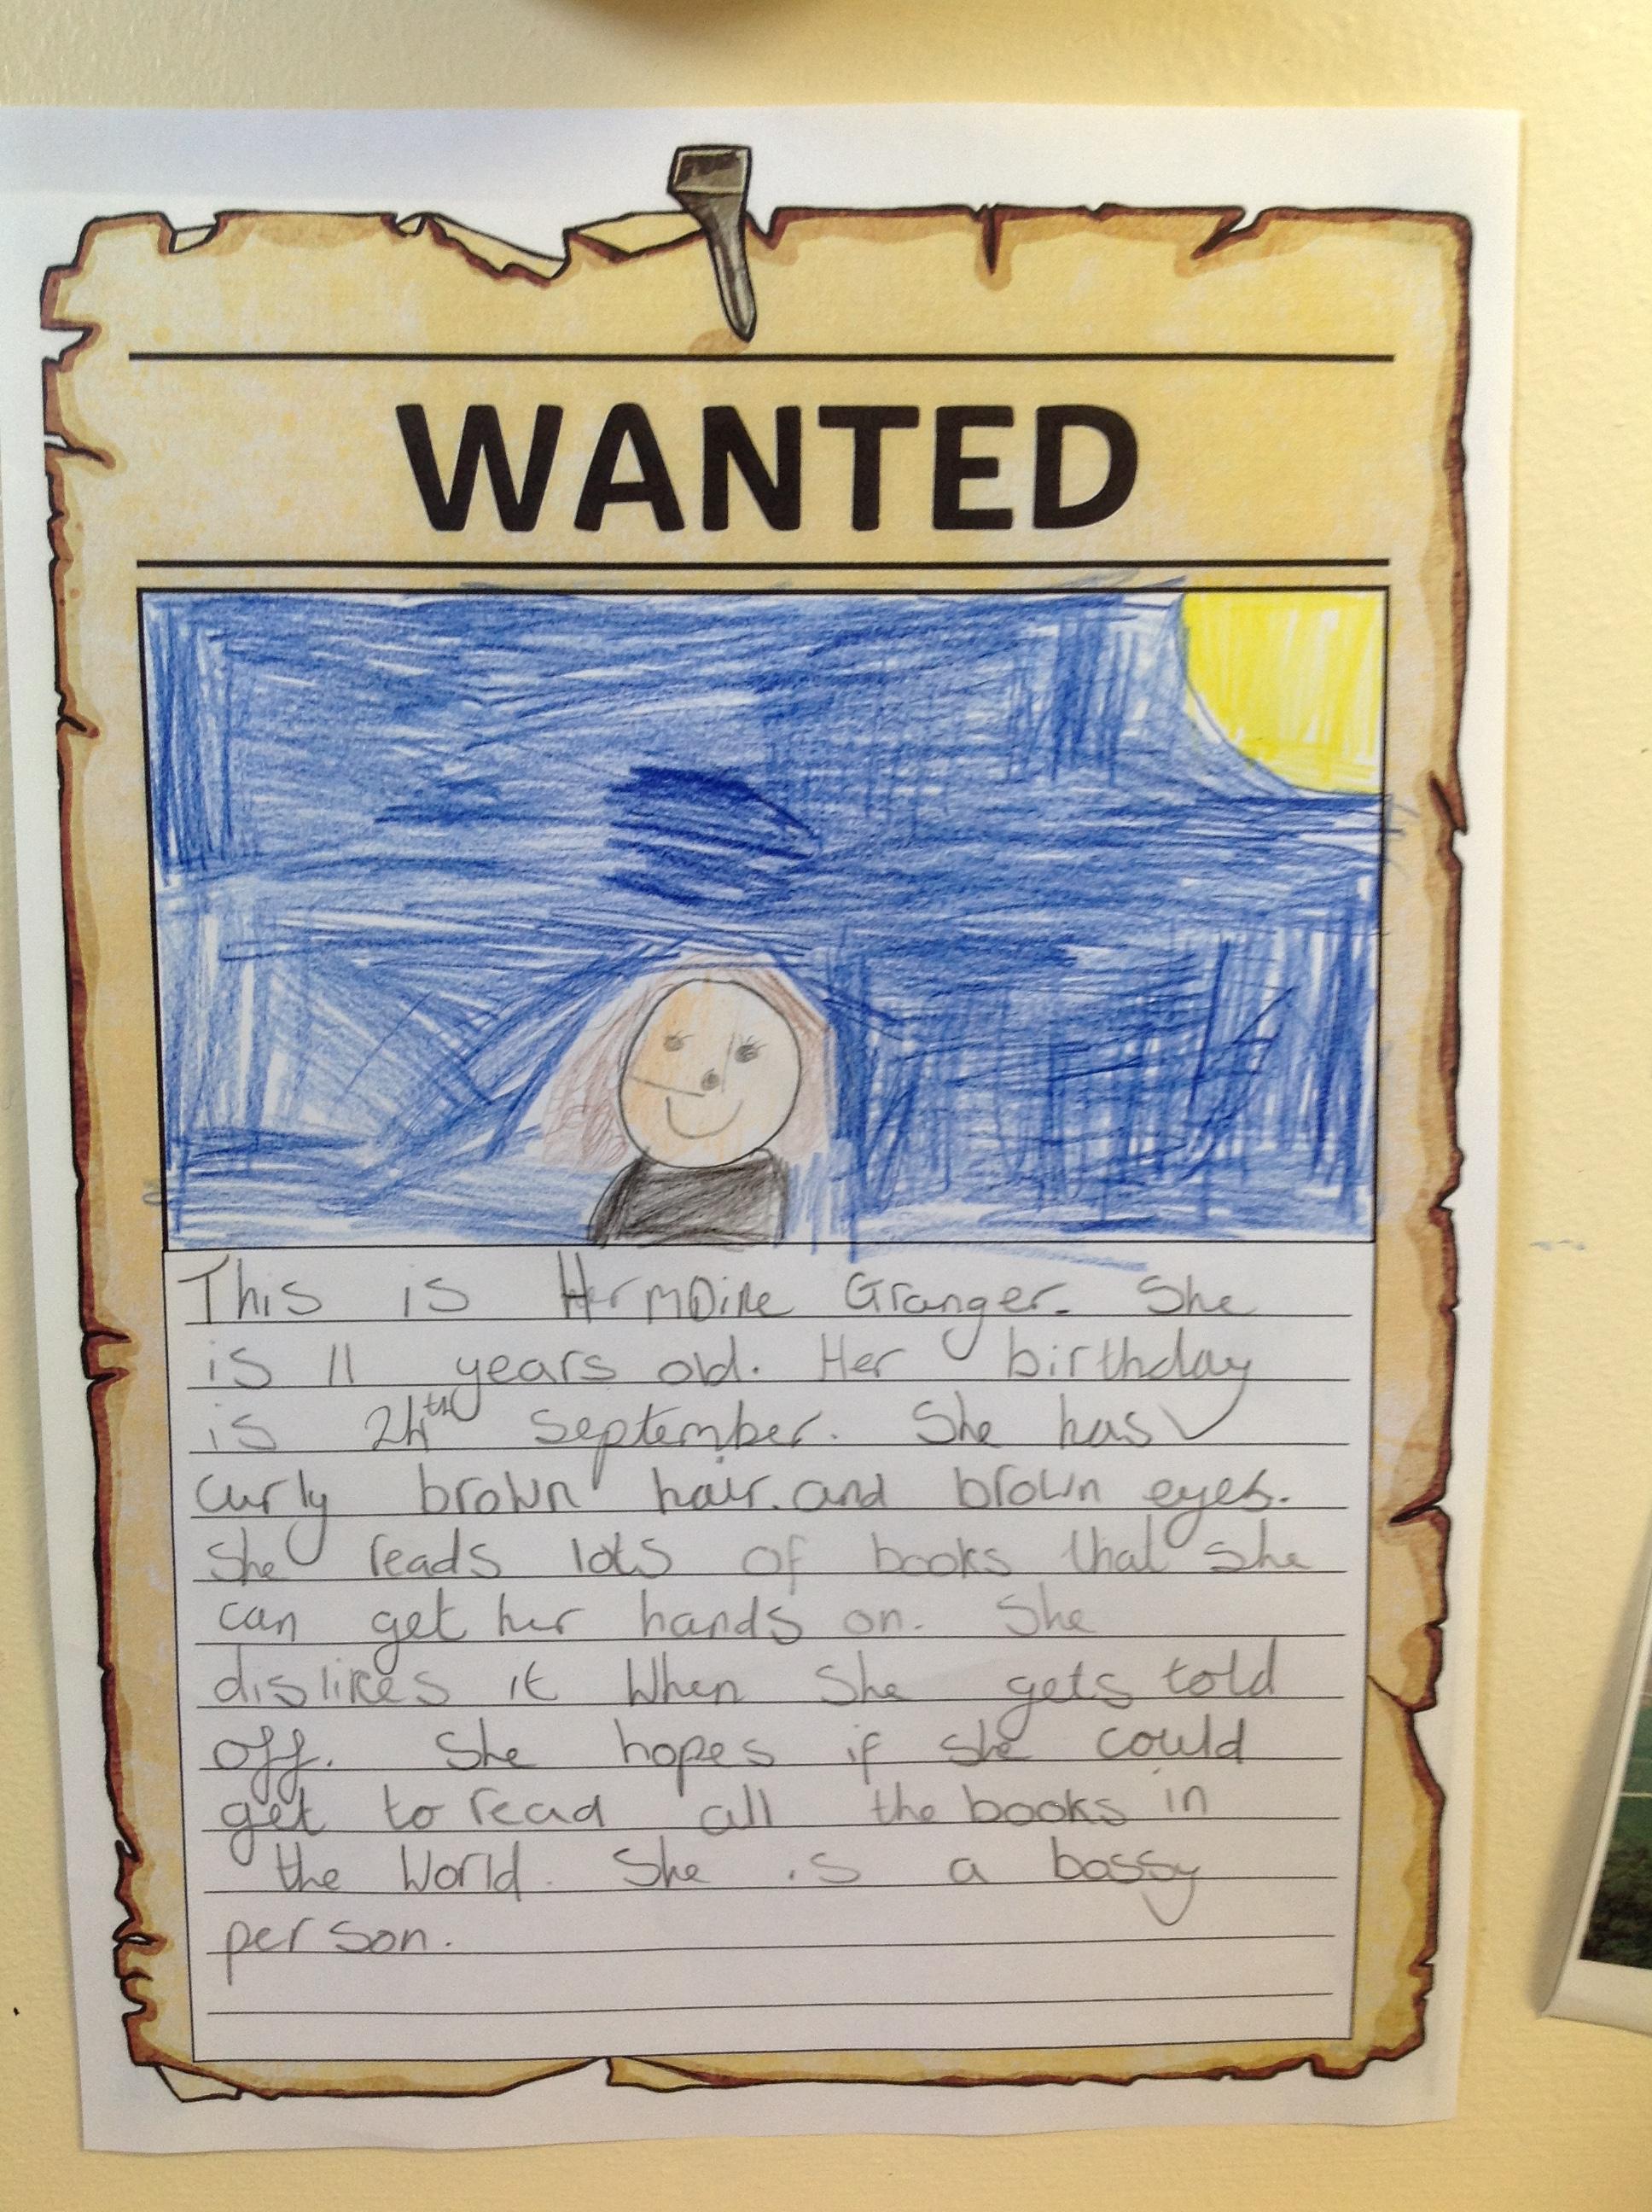 WANTED
This is Hermoine Granger. She
is 11 years old. Her birthday
is 24th September. She has
curly brown hair. and brown eyes.
She reads lots of books that she
can get her hands on. She
dislikes it when she gets told
off. She hopes if she could
get to read all the books in
the world. She is a bossy
person.